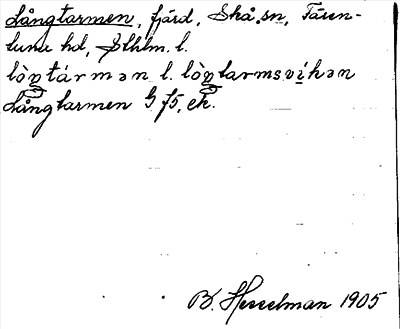 Långtarmen, fjärd, Skå sn, Tären-
luna hd, Sthlm. l.
lòŋtármən l. lòŋtarmsvíkən
Långtarmen G f5, ek.
B. Hesselman 1905